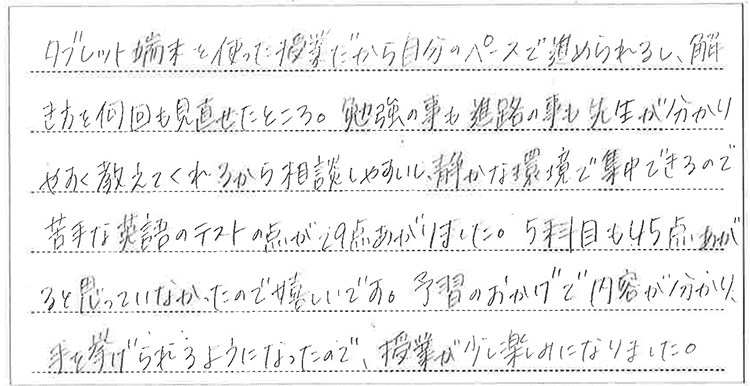 タブレット端末を使った授業だから自分のペースで進められるし、解
き方を何回も見直せたところ。勉強の事も進路の事も先生が分かり
やすく教えてくれるから相談しやすいし、静かな環境で集中できるので
苦手な英語のテストの点が29点あがりました。5科目も45点あが
ると思っていなかったので嬉しいです。予習のおかげで内容が分かり、
手を挙げられるようになったので、授業が少し楽しみになりました。